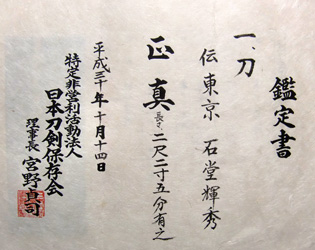 鑑定書
一、刀
伝東京 石堂輝秀
正真 長さ、二尺二寸五分有之
平成三十年十月十四日
特定非営利活動法人
日本刀剣保存会
理事長 宮野貞司